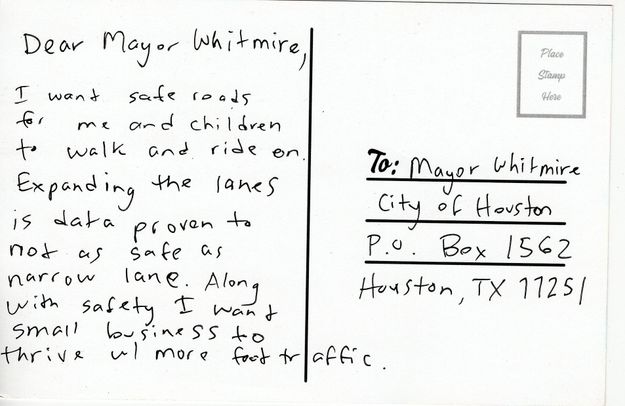 Dear Mayor Whitmire,
I want safe roads
for me and children
to walk and ride on.
Expanding the lanes
is data proven to
not as safe as
narrow lane. Along
with safety I want
small business to
thrive w/ more foot traffic.
Place
Stamp
Here
To: Mayor Whitmire
City of Houston
P.O. Box 1562
Houston, TX 77251